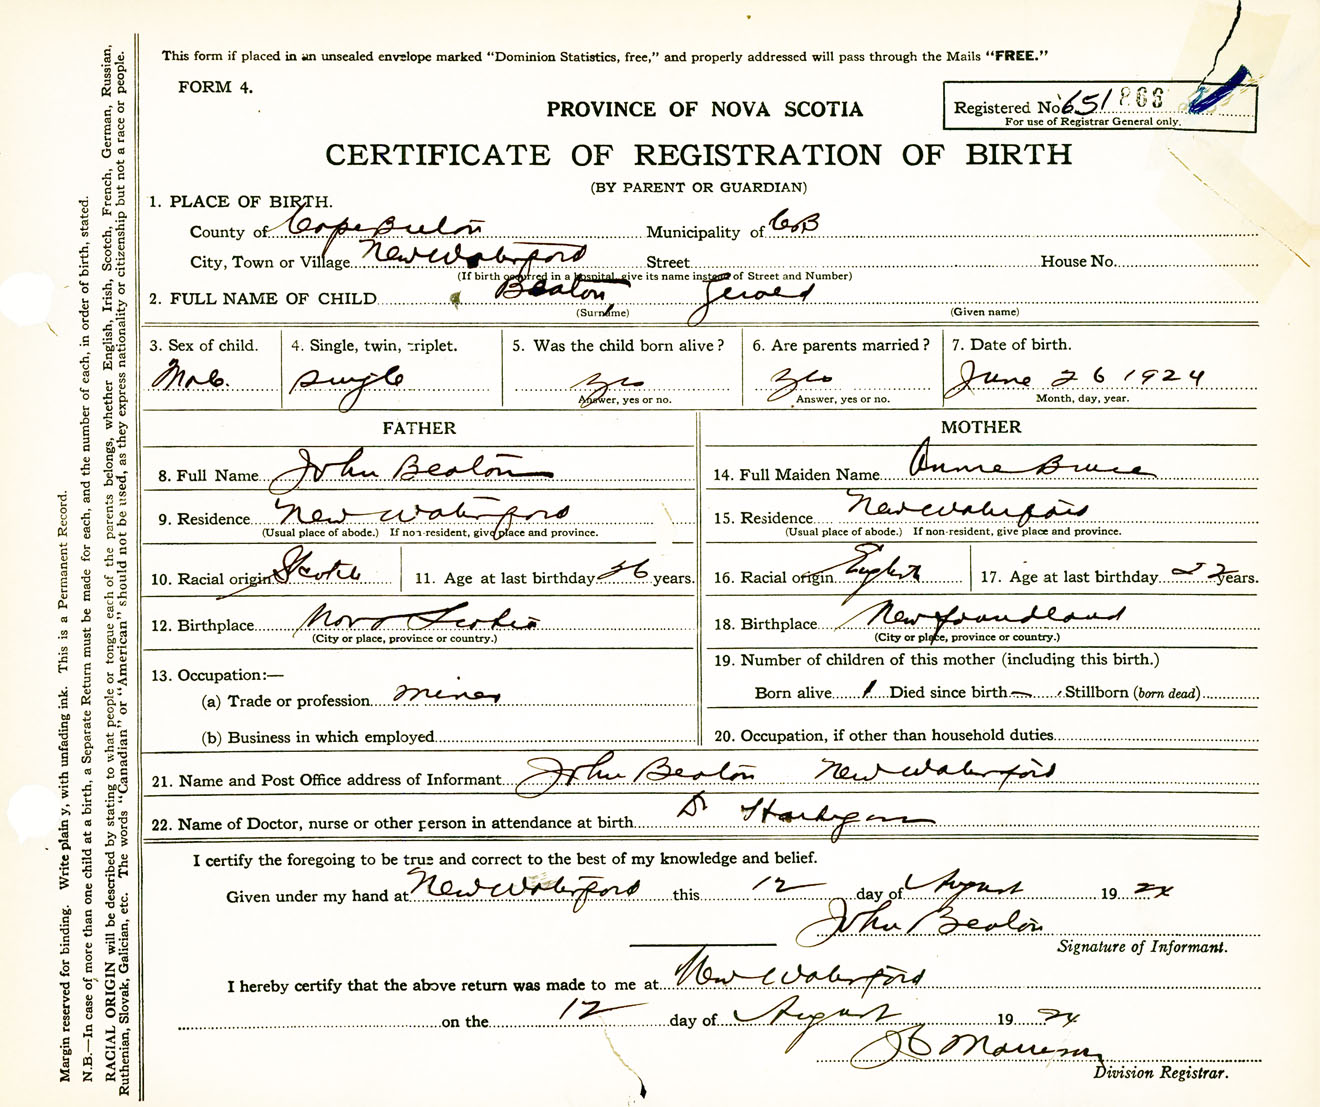 This form if placed in an unsealed envelope marked "Dominion Statistics, free," and properly addressed will pass through the Mails "FREE."
FORM 4.
Registered No 651 866
For use of Registrar General only.
PROVINCE OF NOVA SCOTIA
CERTIFICATE OF REGISTRATION OF BIRTH
(BY PARENT OR GUARDIAN)
1. PLACE OF BIRTH.
County of Cape Breton Municipality of CB
City, Town or Village New Waterford Street House No.
(If birth occurred in a hospital, give its name instead of Street and Number)
2. FULL NAME OF CHILD Beaton Gerald
(Surname) (Given name)
3. Sex of child. 4. Single, twin, triplet. 5. Was the child born alive? 6. Are parents married? 7. Date of birth.
Male. single yes yes June 26 1924
Answer, yes or no. Answer, yes or no. Month, day, year.
FATHER MOTHER
8. Full Name John Beaton 14. Full Maiden Name Annie Bruce
9. Residence New Waterford 15. Residence New Waterford
(Usual place of abode.) If non-resident, give place and province. (Usual place of abode.) If non-resident, give place and province.
10. Racial origin Scotch 11. Age at last birthday 26 years. 16. Racial origin English 17. Age at last birthday 22 years.
12. Birthplace Nova Scotia 18. Birthplace Newfoundland
(City or place, province or country.) (City or place, province or country.)
13. Occupation:— 19. Number of children of this mother (including this birth.)
(a) Trade or profession miner Born alive 1 Died since birth — Stillborn (born dead)
(b) Business in which employed 20. Occupation, if other than household duties
21. Name and Post Office address of Informant John Beaton New Waterford
22. Name of Doctor, nurse or other person in attendance at birth Dr Hartigan
I certify the foregoing to be true and correct to the best of my knowledge and belief.
Given under my hand at New Waterford this 12 day of August 19 24
John Beaton
Signature of Informant.
I hereby certify that the above return was made to me at New Waterford
on the 12 day of August 19 24
Morrison
Division Registrar.
Margin reserved for binding. Write plainly, with unfading ink. This is a Permanent Record.
N.B.—In case of more than one child at a birth, a Separate Return must be made for each, and the number of each, in order of birth, stated.
RACIAL ORIGIN will be described by stating to what people or tongue each of the parents belongs, whether English, Irish, Scotch, French, German, Russian,
Ruthenian, Slovak, Galician, etc. The words "Canadian" or "American" should not be used, as they express nationality or citizenship but not a race or people.